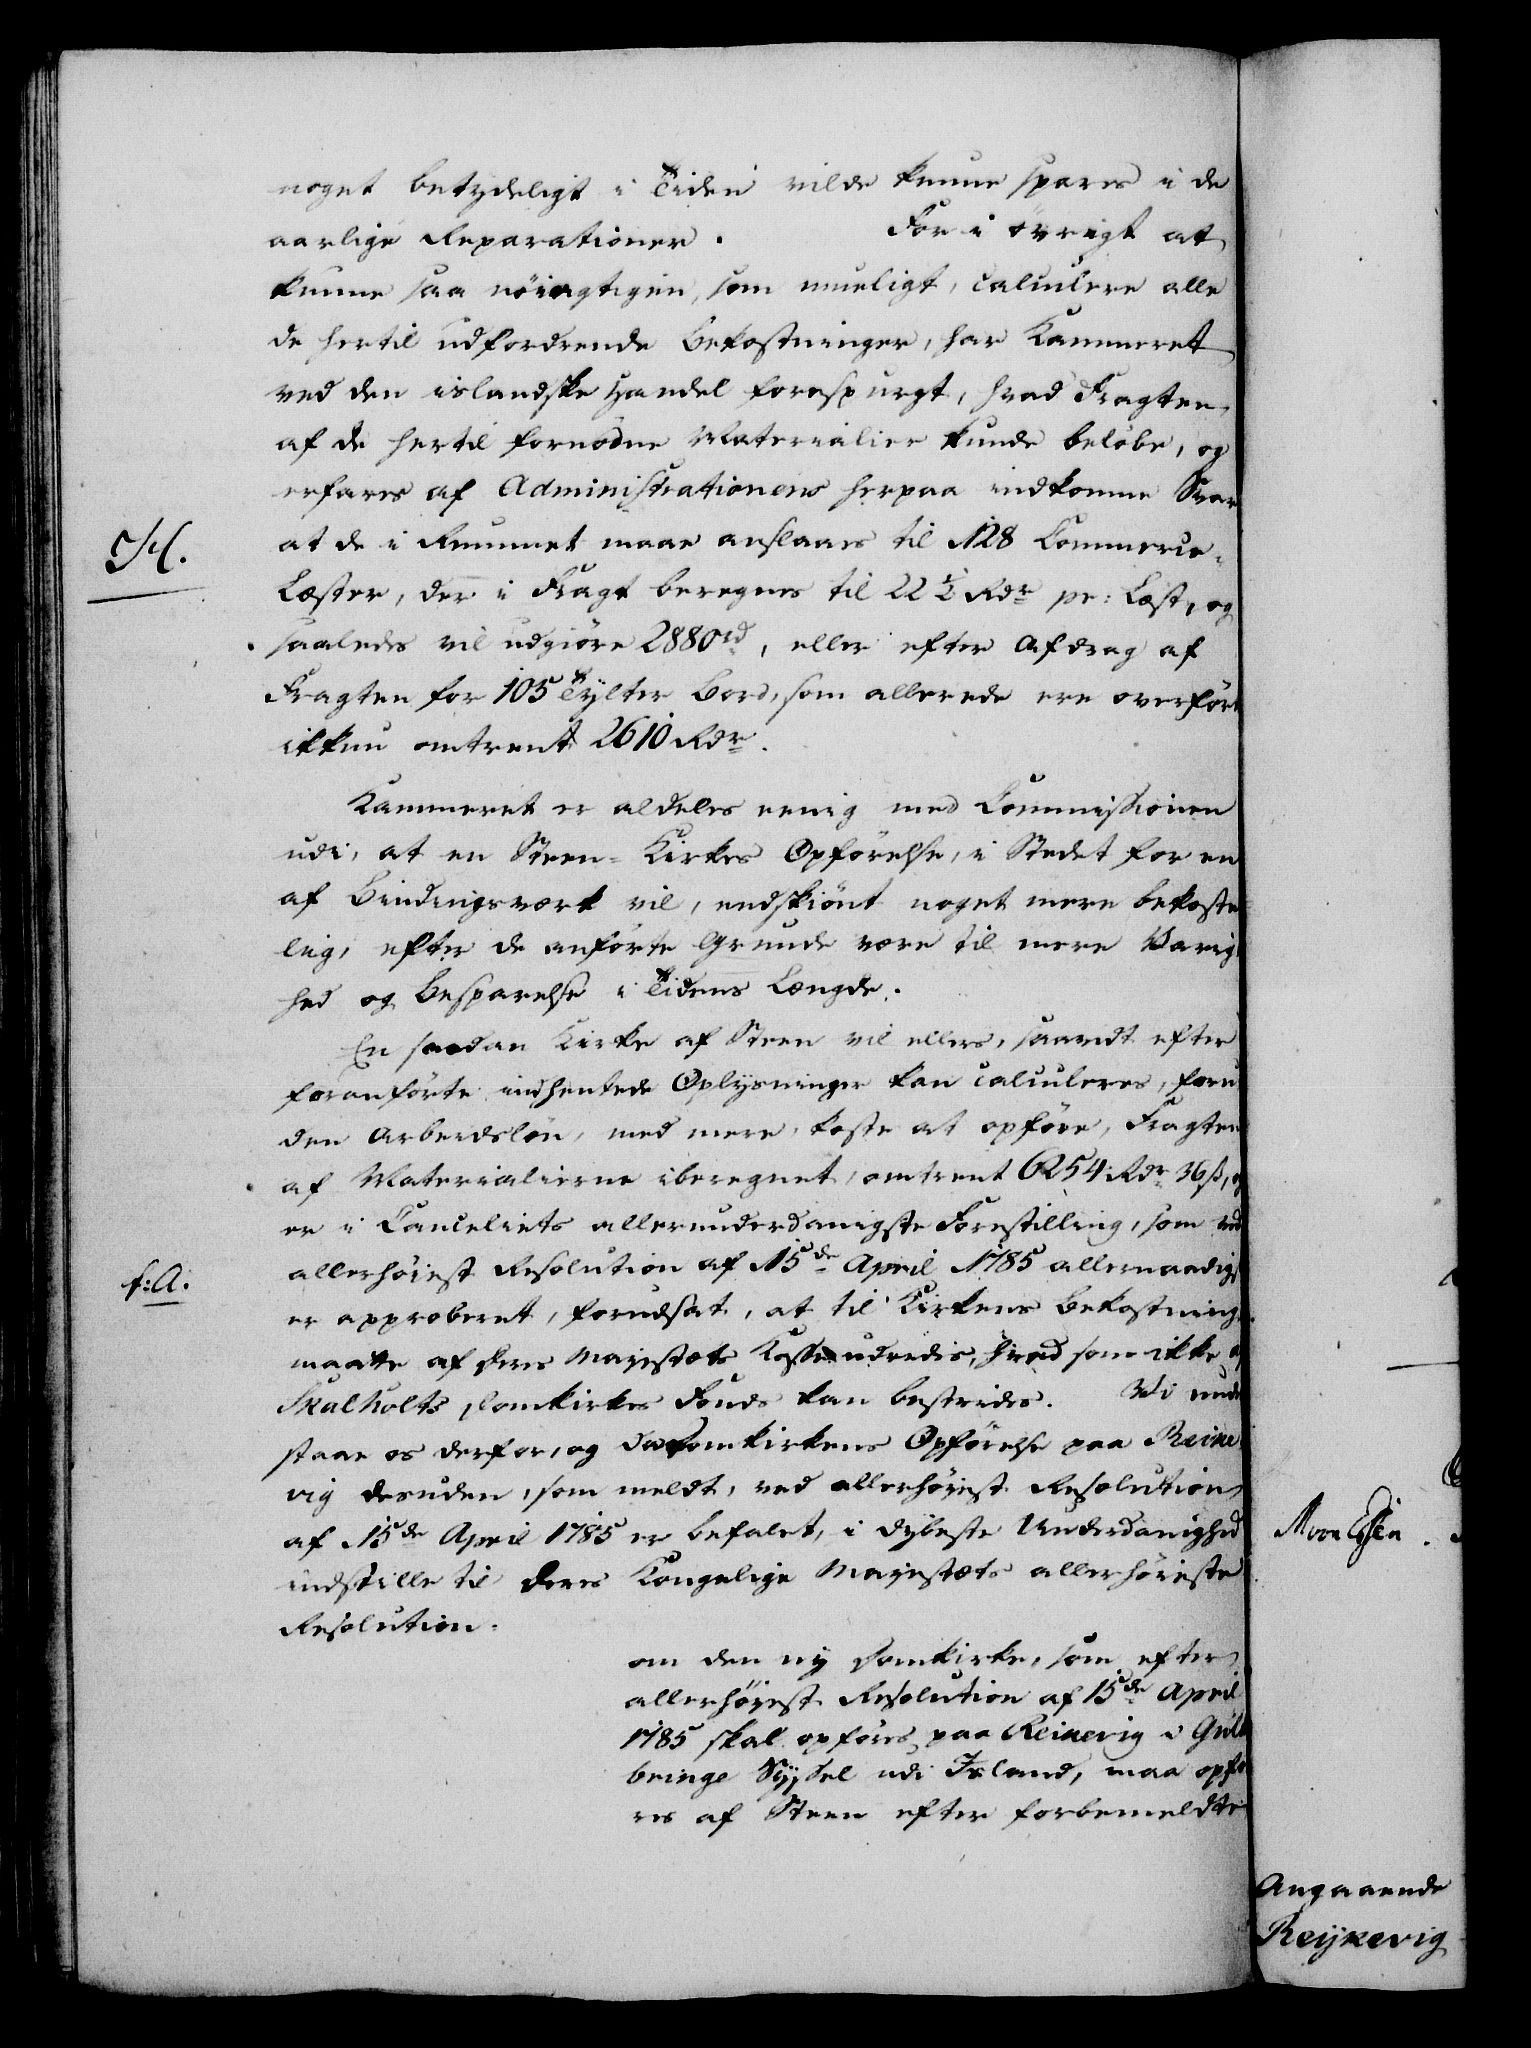 noget betydeligt i Tiden vilde kunne spares i de
aarlige Reparationer. For i övrigt at
kunne saa nöiagtigen, som mueligt, calculere alle
de hertil udfordrende Bekostninger, har Kammeret
ved den islandske Handel forespurgt, hvad Fragten
af de hertil fornödne Materialier kunde belöbe, og
erfares af Administrationens herpaa indkomne Svar
at de i Rummet maae anslaaes til 128 Commerce-
H.
Læster, der i Fragt beregnes til 22 1/2 Rdr pr: Læst, og
saaledes vil udgiöre 2880 rd, eller efter Afdrag af
Fragten for 105 Tylter Bord, som allerede ere overför
ikkun omtrent 2610 Rdr.
Kammeret er aldeles eenig med Commissionen
udi, at en Steen-Kirkes Opförelse, i Stedet for en
af Bindingsværk vil, endskiönt noget mere bekoste
lig, efter de anförte Grunde være til mere Varig
hed og Besparelse i Tidens Længde.
En saadan Kirke af Steen vil ellers, saavidt efter
foranförte indhentede Oplysninger kan calculeres, foru
den Arbeidslön, med mere, koste at opföre, Fragten
af Materialierne iberegnet, omtrent 6254 Rdr 36 ß, og
er i Cancelliets allerunderdanigste Forestilling, som ved
allerhöiest Resolution af 15de April 1785 allernaadigst
f: A.
er approberet, forudsat, at til Kirkens Bekostning
maatte af Deres Majestæts Kasse udredes, hvad som ikke af
Skalholts Domkirkes Fonds kan bestrides. Vi unde
staae os derfor, og da Domkirkens Opförelse paa Reike
vig desuden, som meldt, ved allerhöiest Resolution
af 15de April 1785 er befalet, i dybeste Underdanighed
indstille til Deres Kongelige Majestæts allerhöieste
Resolution.
om den ny Domkirke, som efter
allerhöyest Resolution af 15de April
1785 skal opföres paa Reikevig i Guld
bringe Syssel udi Island, maa opfö
res af Steen efter forbemeldte
Angaaende
Reykevig